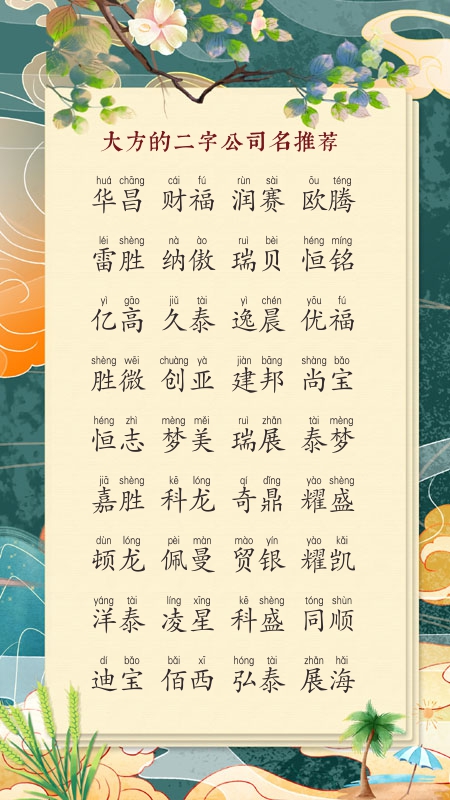 大方的二字公司名推荐
huá chāng cái fú rùn sài ōu téng
华昌 财福 润赛 欧腾
léi shèng nà ào ruì bèi héng míng
雷胜 纳傲 瑞贝 恒铭
yì gāo jiǔ tài yì chén yōu fú
亿高 久泰 逸晨 优福
shèng wēi chuàng yà jiàn bāng shàng bǎo
胜微 创亚 建邦 尚宝
héng zhì mèng měi ruì zhǎn tài mèng
恒志 梦美 瑞展 泰梦
jiā shèng kē lóng qí dǐng yào shèng
嘉胜 科龙 奇鼎 耀盛
dùn lóng pèi màn mào yín yào kǎi
顿龙 佩曼 贸银 耀凯
yáng tài líng xīng kē shèng tóng shùn
洋泰 凌星 科盛 同顺
dí bǎo bǎi xī hóng tài zhǎn hǎi
迪宝 佰西 弘泰 展海